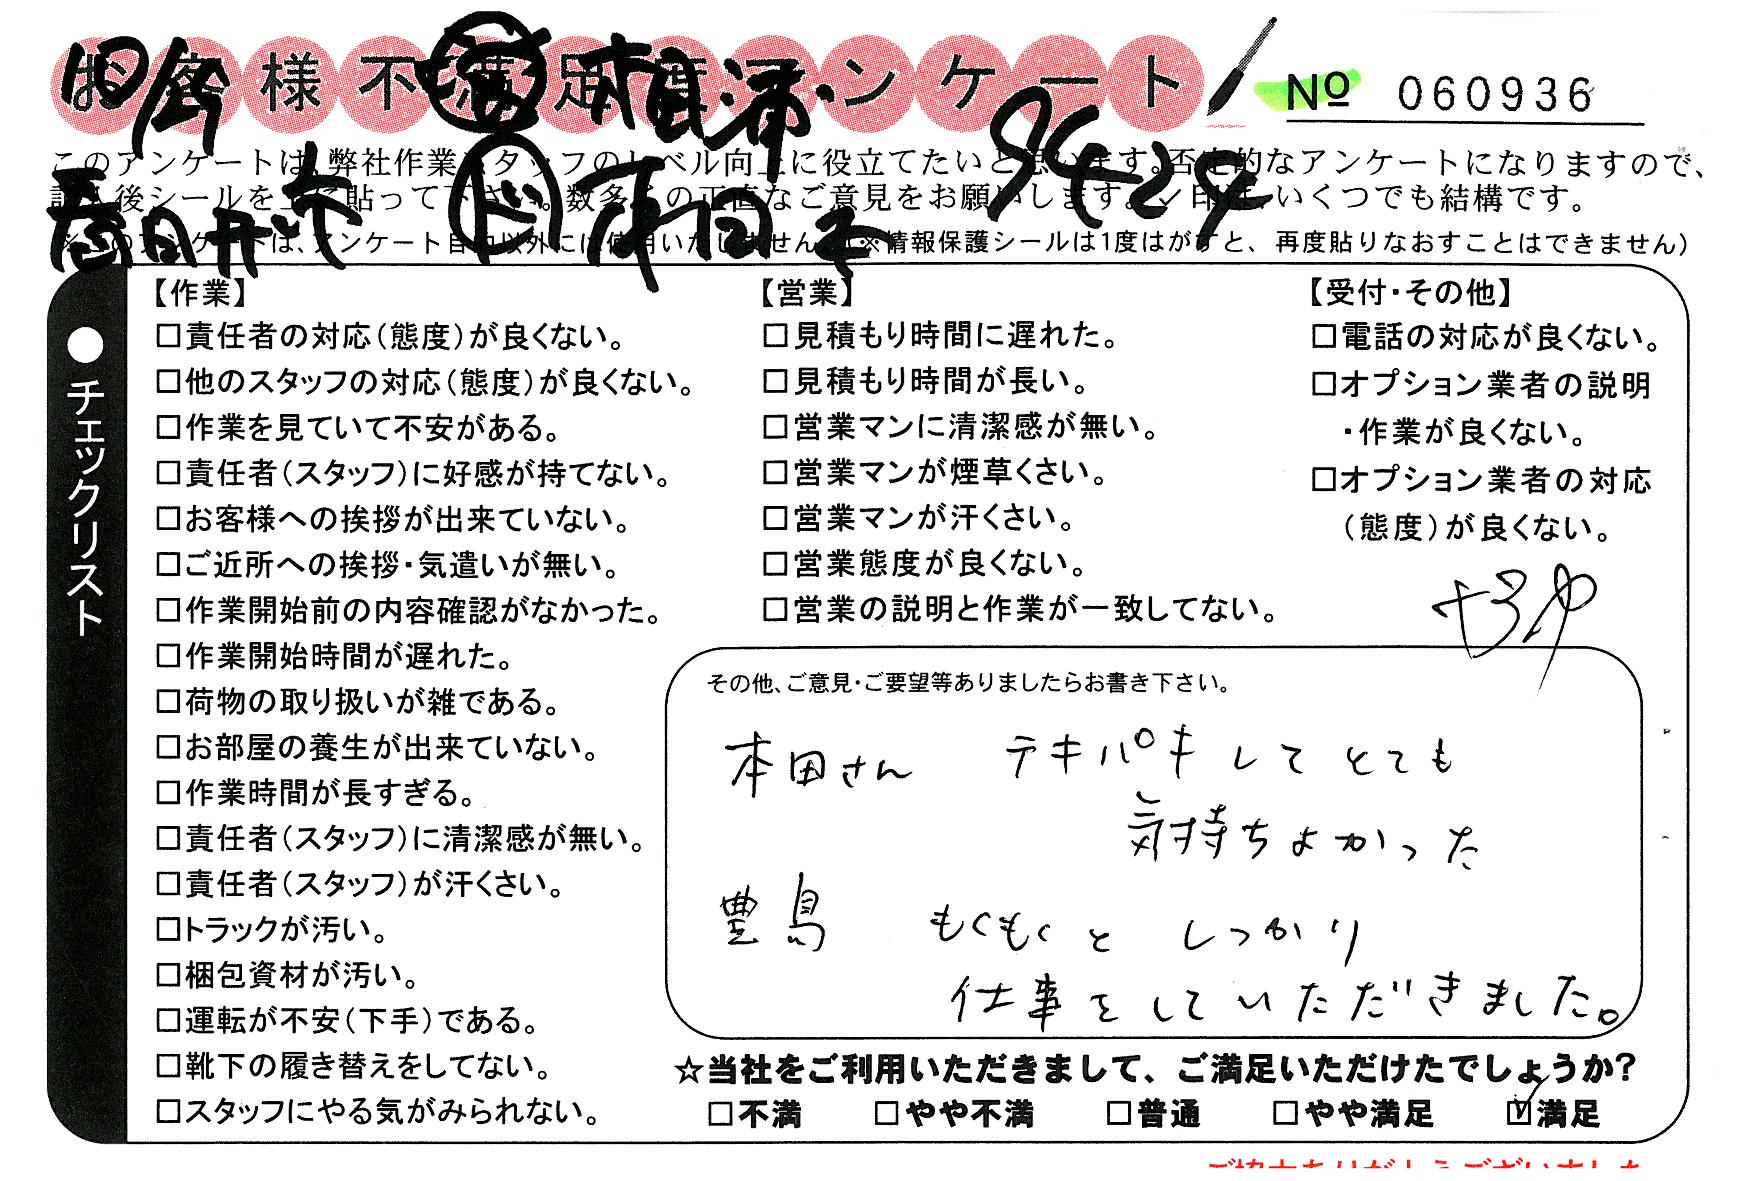 お客様不満足度アンケート
№ 060936
このアンケートは、弊社作業スタッフのレベル向上に役立てたいと思います。否定的なアンケートになりますので、
記入後シールを上に貼って下さい。数多くの正直なご意見をお願いします。✓印は、いくつでも結構です。
※このアンケートは、アンケート目的以外には使用いたしません。(※情報保護シールは1度はがすと、再度貼りなおすことはできません)
●チェックリスト
【作業】
□責任者の対応(態度)が良くない。
□他のスタッフの対応(態度)が良くない。
□作業を見ていて不安がある。
□責任者(スタッフ)に好感が持てない。
□お客様への挨拶が出来ていない。
□ご近所への挨拶・気遣いが無い。
□作業開始前の内容確認がなかった。
□作業開始時間が遅れた。
□荷物の取り扱いが雑である。
□お部屋の養生が出来ていない。
□作業時間が長すぎる。
□責任者(スタッフ)に清潔感が無い。
□責任者(スタッフ)が汗くさい。
□トラックが汚い。
□梱包資材が汚い。
□運転が不安(下手)である。
□靴下の履き替えをしてない。
□スタッフにやる気がみられない。
【営業】
□見積もり時間に遅れた。
□見積もり時間が長い。
□営業マンに清潔感が無い。
□営業マンが煙草くさい。
□営業マンが汗くさい。
□営業態度が良くない。
□営業の説明と作業が一致してない。
【受付・その他】
□電話の対応が良くない。
□オプション業者の説明
・作業が良くない。
□オプション業者の対応
(態度)が良くない。
その他、ご意見・ご要望等ありましたらお書き下さい。
本田さん テキパキしてとても
気持ちよかった
豊島 もくもくと しっかり
仕事をしていただきました。
☆当社をご利用いただきまして、ご満足いただけたでしょうか?
□不満 □やや不満 □普通 □やや満足 ☑満足
ご協力ありがとうございました